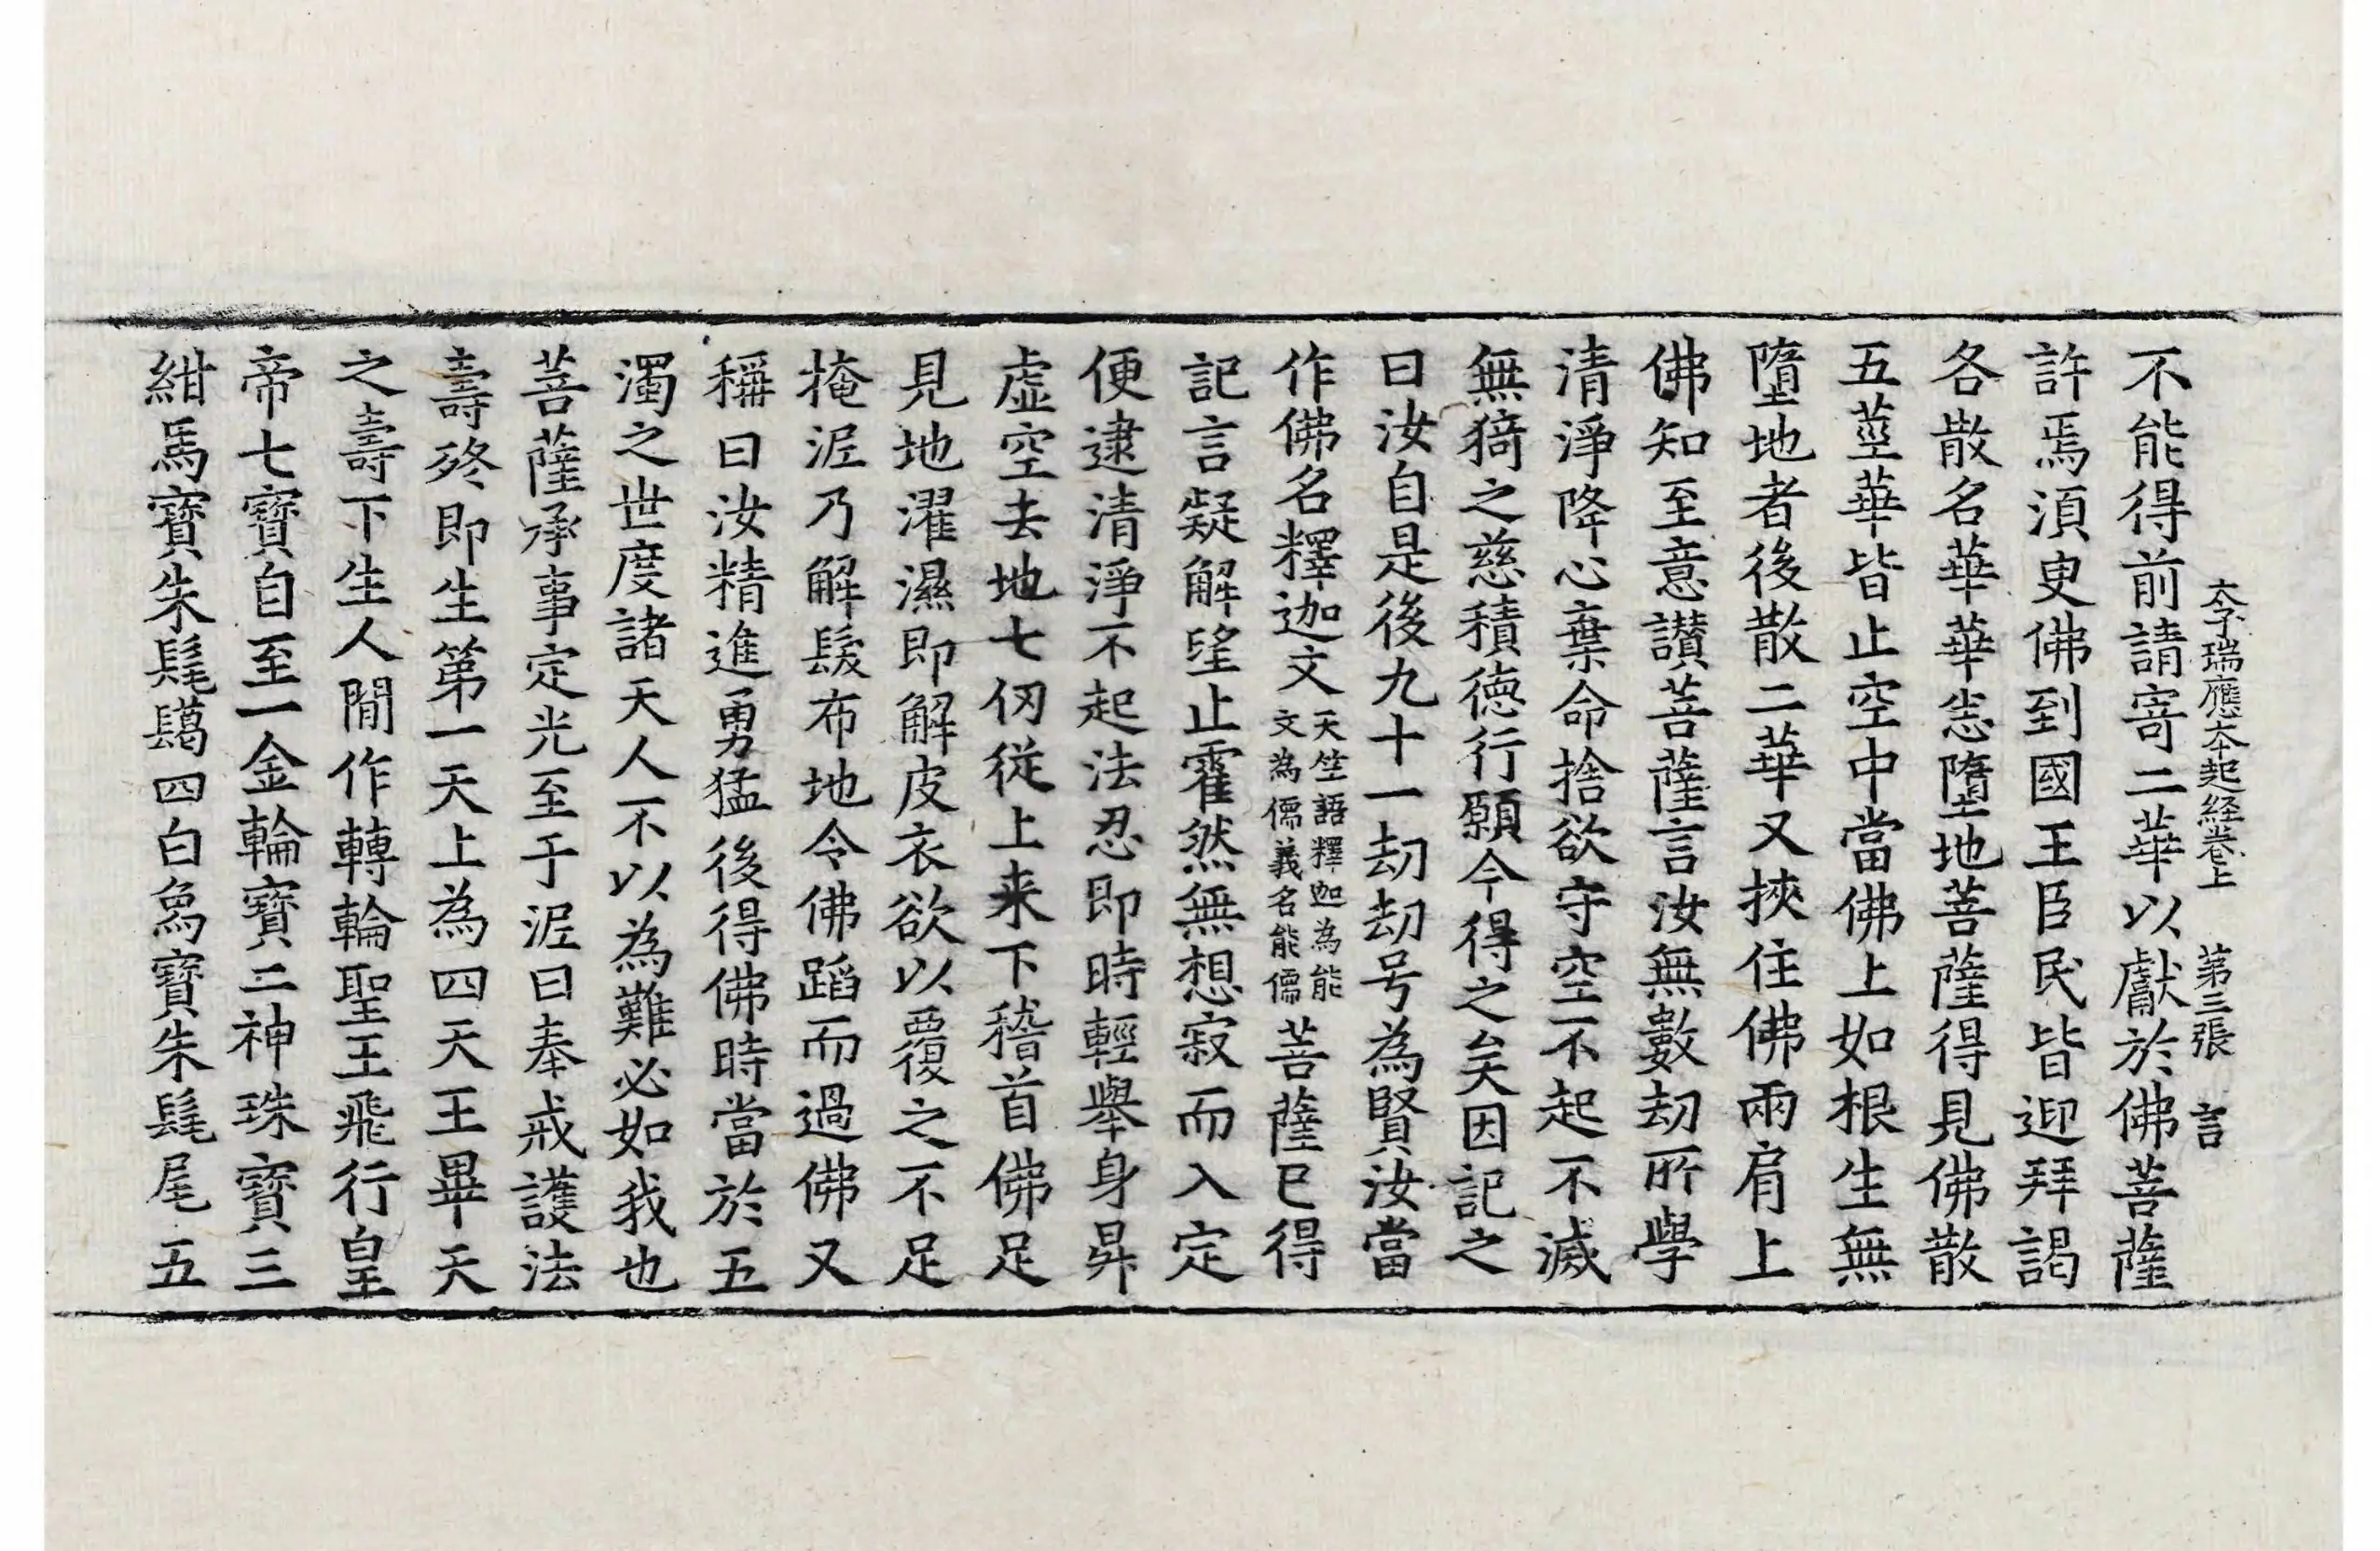 太子瑞應本起経卷上　第三張　言
不能得前請寄二華以獻於佛菩薩
許焉湏臾佛到國王臣民皆迎拜謁
各散名華華悉墮地菩薩得見佛散
五莖華皆止空中當佛上如根生無
墮地者後散二華又挾住佛兩肩上
佛知至意讃菩薩言汝無數劫所學
清淨降心棄命捨欲守空不起不滅
無猗之慈積德行願今得之矣因記之
曰汝自是後九十一劫劫号為賢汝當
作佛名釋迦文天竺語釋迦為能文為儒義名能儒菩薩已得
記言疑解望止霍然無想寂而入定
便逮清淨不起法忍即時輕舉身昇
虛空去地七仞従上来下稽首佛足
見地濯濕即解皮衣欲以覆之不足
掩泥乃解髮布地令佛蹈而過佛又
稱曰汝精進勇猛後得佛時當於五
濁之世度諸天人不以為難必如我也
菩薩承事定光至于泥曰奉戒護法
壽終即生第一天上為四天王畢天
之壽下生人間作轉輪聖王飛行皇
帝七寶自至一金輪寶二神珠寶三
紺馬寶朱髦鬣四白象寶朱髦尾五